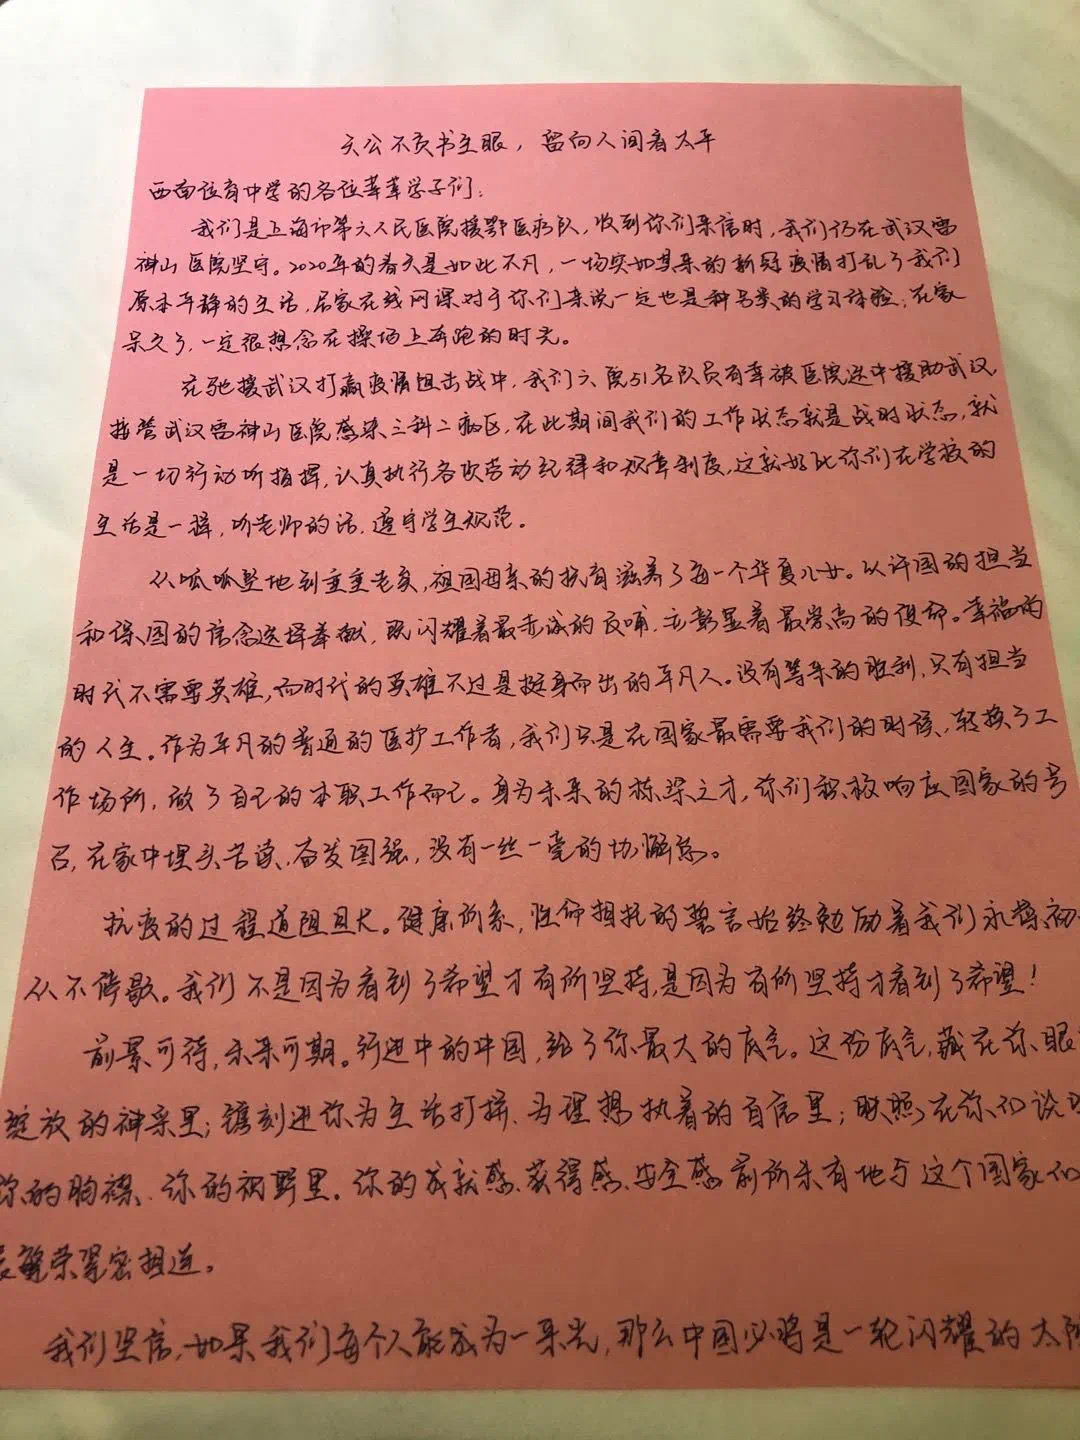 天公不负书生眼，留向人间看太平
西南位育中学的各位莘莘学子们：
我们是上海市第六人民医院援鄂医疗队，收到你们来信时，我们仍在武汉雷
神山医院坚守。2020年的春天是如此不凡，一场突如其来的新冠疫情打乱了我们
原本平静的生活，居家在线网课对于你们来说一定也是种另类的学习体验，在家
呆久了，一定很想念在操场上奔跑的时光。
在驰援武汉打赢疫情阻击战中，我们六院51名队员有幸被医院选中援助武汉，
接管武汉雷神山医院感染三科二病区，在此期间我们的工作状态就是战时状态，就
是一切行动听指挥，认真执行各项劳动纪律和规章制度，这就好比你们在学校的
生活是一样，听老师的话，遵守学生规范。
从呱呱坠地到垂垂老矣，祖国母亲的抚育滋养了每一个华夏儿女。以许国的担当
和保国的信念选择奉献，既闪耀着最赤诚的反哺，亦彰显着最崇高的使命。幸福的
时代不需要英雄，而时代的英雄不过是挺身而出的平凡人。没有等来的胜利，只有担当
的人生。作为平凡的普通的医护工作者，我们只是在国家最需要我们的时候，转换了工
作场所，做了自己的本职工作而已。身为未来的栋梁之才，你们积极响应国家的号
召，在家中埋头苦读、奋发图强，没有一丝一毫的松懈怠。
抗疫的过程道阻且长。健康所系，性命相托的誓言始终勉励着我们永攀，初
从不停歇。我们不是因为看到了希望才有所坚持，是因为有所坚持才看到了希望！
前景可待，未来可期。行进中的中国，给了你最大的底气。这份底气，藏在你眼
绽放的神采里；镌刻进你为生活打拼、为理想执着的自信里；映照在你们说
你的胸襟、你的视野里。你的成就感、获得感、安全感前所未有地与这个国家的
繁荣紧密相连。
我们坚信，如果我们每个人能成为一束光，那么中国必将是一轮闪耀的太阳